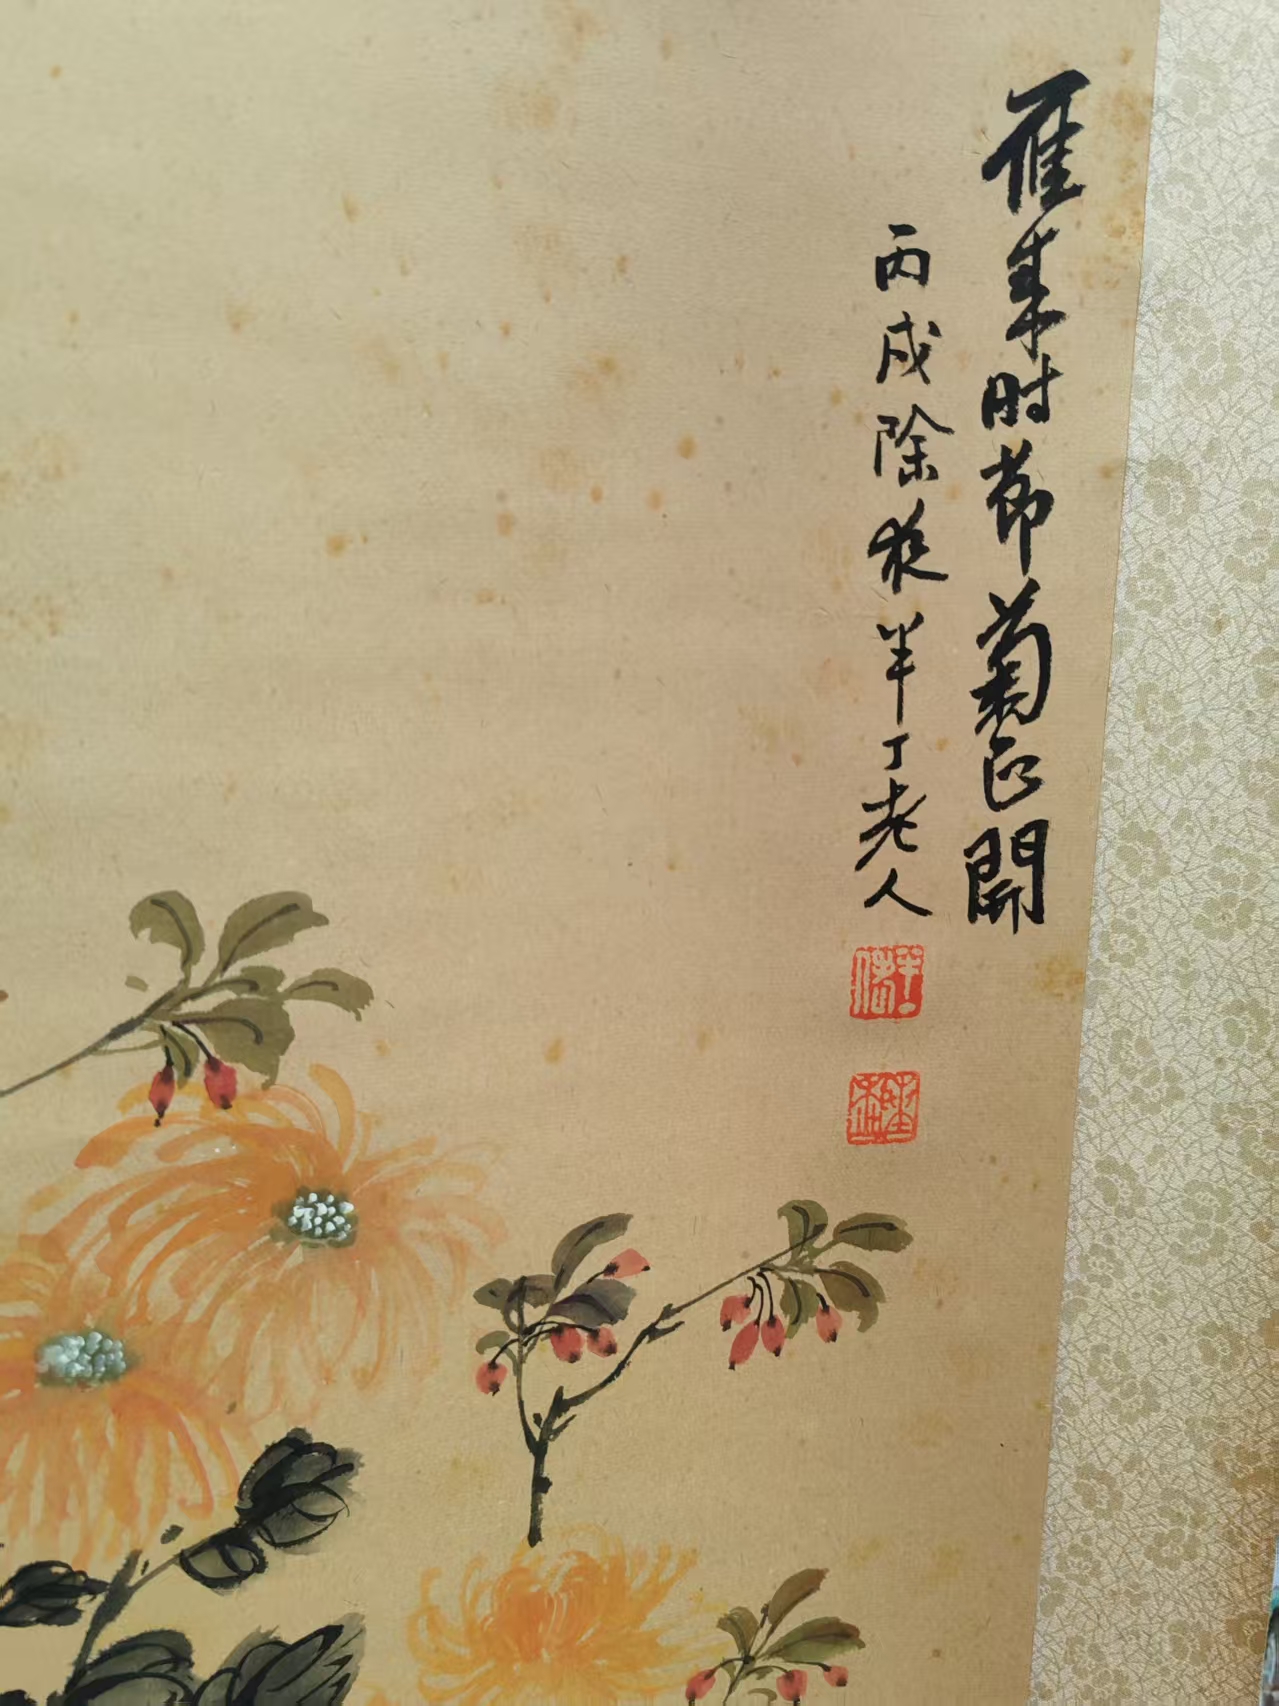 雁来时節菊正開
丙戌除夜半丁老人